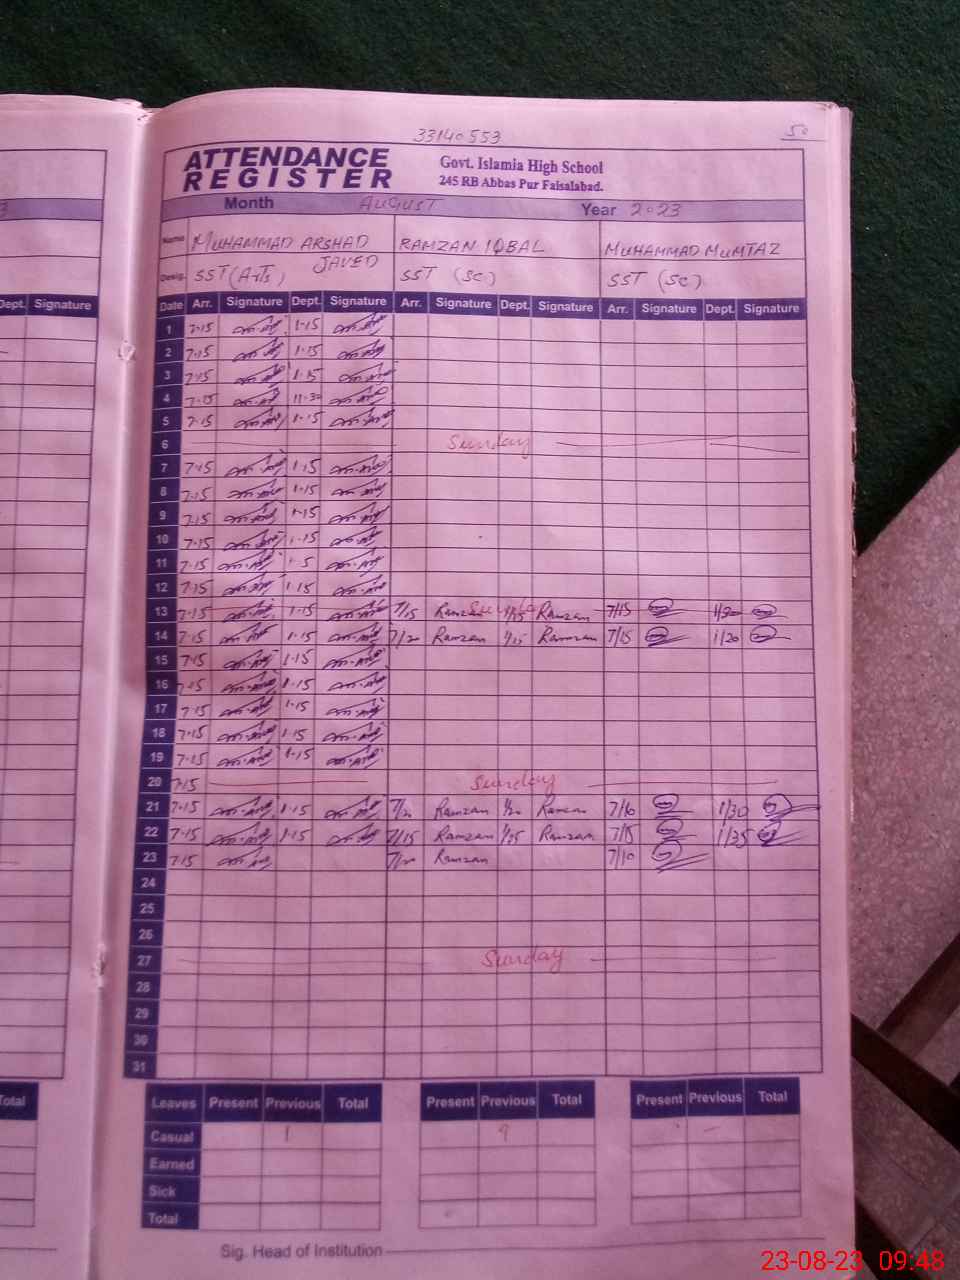 33140553
50
ATTENDANCE REGISTER
Govt. Islamia High School
245 RB Abbas Pur Faisalabad.
Month AUGUST Year 2023
Name MUHAMMAD ARSHAD JAVED RAMZAN IQBAL MUHAMMAD MUMTAZ
Desig. SST (Arts) SST (SC) SST (SC)
Dept. Signature Date Arr. Signature Dept. Signature Arr. Signature Dept. Signature Arr. Signature Dept. Signature
1 7-15 1-15
2 7-15 1-15
3 7-15 1-15
4 7-15 11-30
5 7-15 1-15
6 Sunday
7 7-15 1-15
8 7-15 1-15
9 7-15 1-15
10 7-15 1-15
11 7-15
12 7-15 1-15
13 7-15 1-15 7/15 Ramzan Ramzan 7/15
14 7-15 1-15 7/20 Ramzan 1/15 Ramzan 7/15 1/20
15 7-15 1-15
16 7-15 1-15
17 7-15 1-15
18 7-15 1-15
19 7-15 1-15
20 7-15 Sunday
21 7-15 1-15 7/20 Ramzan 1/20 Ramzan 7/16 1/30
22 7-15 1-15 7/15 Ramzan 1/35 Ramzan 7/15 1/35
23 7-15 7/20 Ramzan 7/10
24
25
26
27 Sunday
28
29
30
31
Total Leaves Present Previous Total Present Previous Total Present Previous Total
Casual 1 9 -
Earned
Sick
Total
Sig. Head of Institution
23-08-23 09:48